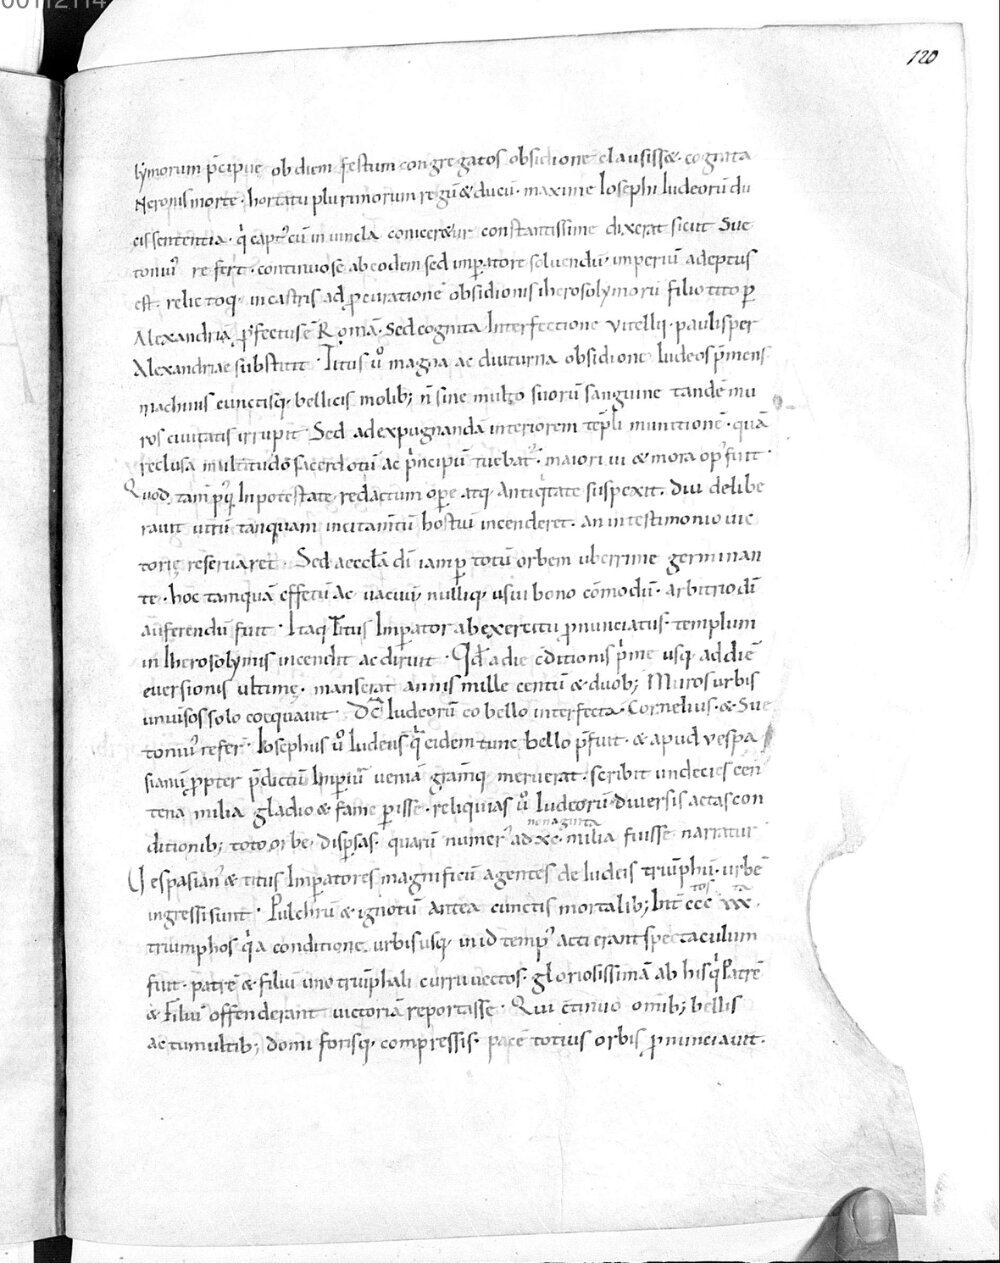 00112114
120
lymorum p̄cipue ob diem festum congregatos obsidione clausiss&. cognita
Neronis morte. hortatu plurimorum regū & ducū. maxime Iosephi Iudeorū du
cis sententia. q̇ capt᾽ cū in uincla coniceret᾽ur constantissime dixerat sicut Sue
toniu᾽ refert. continuo se ab eodem sed imp̄atore soluendū. imperiū adeptus
est. relictoq; in castris ad ꝓcurationē obsidionis iherosolymorū filio tito ꝑ
Alexandriā ꝓfectus ē Romā. Sed cognita Interfectione vitellij. paulisper
Alexandriae substitit. Titus ū magna ac diuturna obsidione Iudeos p̄mens
machinis cunctisq; bellicis molib; n̄ sine multo suorū sanguine tandē mu
ros ciuitatis irrupit. Sed ad expugnandā interiorem tēpli munitionē. quā
reclusa multitudo sacerdotū ac ṗncipū tuebat᾽. maiori ui & mora op᾽ fuit.
Quod tam in potestate redactum ope atq; antiq̇tate suspexit. diu delibe
rauit utrū tanquam incitam̄tū hostiū incenderet. an in testimonio uic
torię reseruaret. Sed aeccłā dī iam ꝑ totū orbem uberrime germinan
te. hoc tamquā effetū ac uacuū. nulliq; usui bono cōmodū. arbitrio dī
auferendū fuit. Itaq; Titus Imperator ab exercitu ꝓnunciatus. templum
in Iherosolymis incendit ac diruit. Qd̄ a die c̄ditionis ṗme usq; ad diē
euersionis ultimę. manserat annis mille centū & duob; Muros urbis
uniu᾽sos solo coequauit. Dc̄ Iudeorū eo bello interfecta. Cornelius. & Sue
toniu᾽ refer᾽. Iosephus ū Iudeus q̇ eidem tunc bello p̄fuit. & apud vespa
sianū ꝓpter p̄dictū Impiū ueniā gratiāq; meruerat. scribit undecies cen
tena milia gladio & fame ꝑisse. reliquias ū Iudeorū. diuersis actas con
ditionib; toto orbe dispsas. quarū numer᾽ ad xc. milia fuisse narratur
nonaginta
Uespasian᾽ & titus Imperatores magnificū agentes de Iudeis triūphū. urbē
ingressi sunt. Pulchrū & ignotū antea cunctis mortalib; int᾽ ccc^tos xx^ta.
triumphos q̇ a conditione urbis usq; in id temp᾽ acti erant spectaculum
fuit. patrē & filiū uno triūphali curru uectos. gloriosissimā ab his q̇ Patrē
& Filiū offenderant uictoriā reportasse. Qui c̄tinuo omīb; bellis
ac tumultib; domi forisq; compressis. pacē totius orbis ꝓnunciauit.